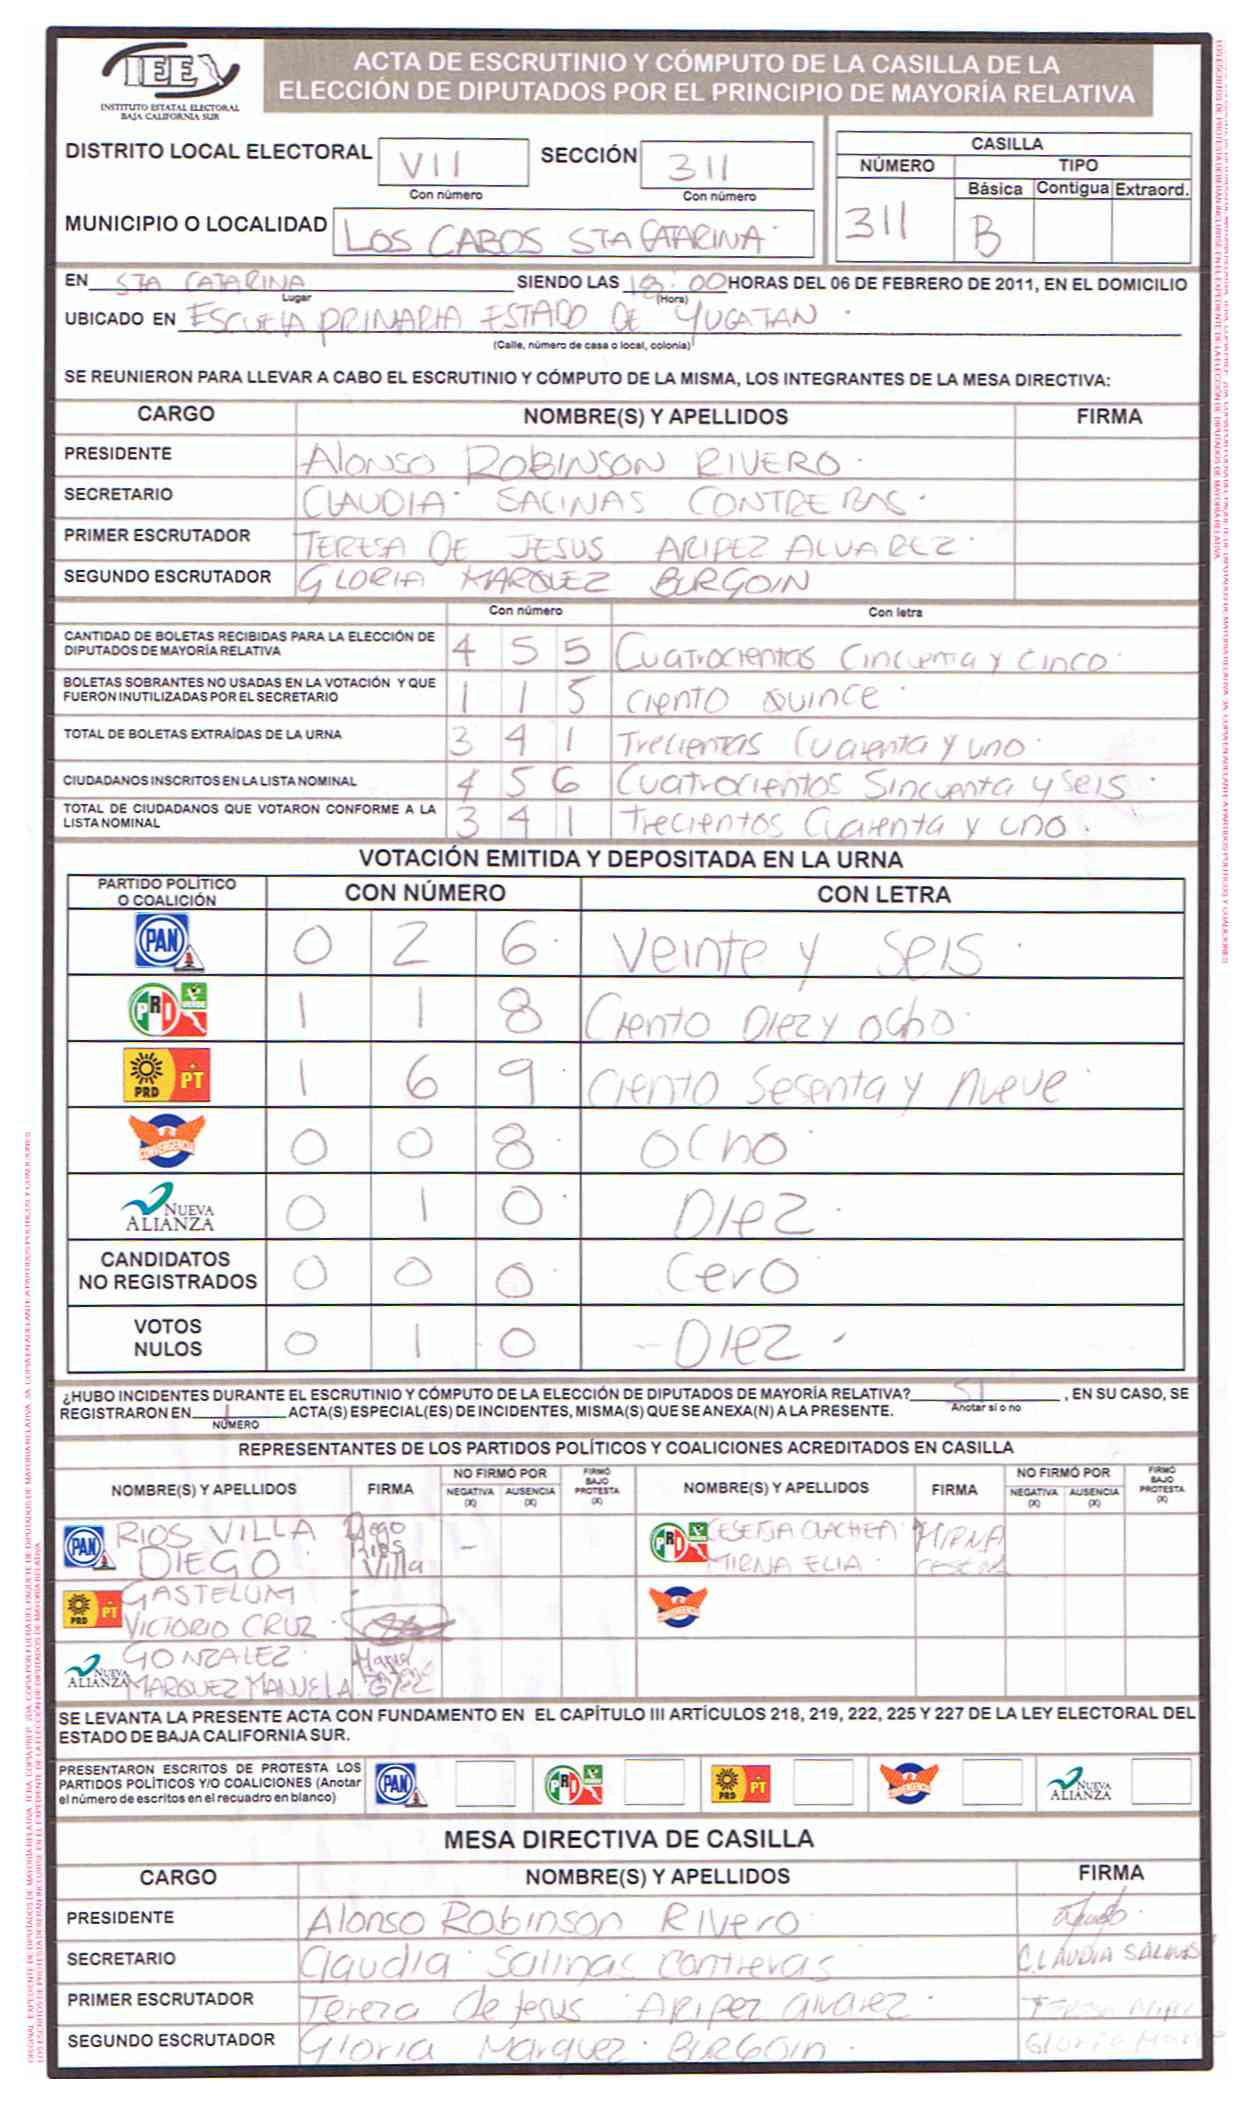 IEE
INSTITUTO ESTATAL ELECTORAL
BAJA CALIFORNIA SUR
ACTA DE ESCRUTINIO Y CÓMPUTO DE LA CASILLA DE LA
ELECCIÓN DE DIPUTADOS POR EL PRINCIPIO DE MAYORÍA RELATIVA
DISTRITO LOCAL ELECTORAL VII SECCIÓN 311
Con número Con número
MUNICIPIO O LOCALIDAD LOS CABOS STA CATARINA
CASILLA
NÚMERO TIPO
Básica Contigua Extraord.
311 B
EN STA CATARINA SIENDO LAS 18:00 HORAS DEL 06 DE FEBRERO DE 2011, EN EL DOMICILIO
Lugar (Hora)
UBICADO EN ESCUELA PRIMARIA ESTADO DE YUCATAN
(Calle, número de casa o local, colonia)
SE REUNIERON PARA LLEVAR A CABO EL ESCRUTINIO Y CÓMPUTO DE LA MISMA, LOS INTEGRANTES DE LA MESA DIRECTIVA:
CARGO NOMBRE(S) Y APELLIDOS FIRMA
PRESIDENTE Alonso ROBINSON RIVERO
SECRETARIO CLAUDIA SALINAS CONTRERAS
PRIMER ESCRUTADOR TERESA DE JESUS ARIPEZ ALVAREZ
SEGUNDO ESCRUTADOR GLORIA MARQUEZ BURGOIN
Con número Con letra
CANTIDAD DE BOLETAS RECIBIDAS PARA LA ELECCIÓN DE
DIPUTADOS DE MAYORÍA RELATIVA 4 5 5 Cuatrocientas Cincuenta y cinco
BOLETAS SOBRANTES NO USADAS EN LA VOTACIÓN Y QUE
FUERON INUTILIZADAS POR EL SECRETARIO 1 1 5 ciento quince
TOTAL DE BOLETAS EXTRAÍDAS DE LA URNA 3 4 1 Trecientas Cuarenta y uno
CIUDADANOS INSCRITOS EN LA LISTA NOMINAL 4 5 6 Cuatrocientos Sincuenta y seis
TOTAL DE CIUDADANOS QUE VOTARON CONFORME A LA
LISTA NOMINAL 3 4 1 Trecientos Cuarenta y uno
VOTACIÓN EMITIDA Y DEPOSITADA EN LA URNA
PARTIDO POLÍTICO
O COALICIÓN CON NÚMERO CON LETRA
PAN 0 2 6 Veinte y seis
PRI VERDE 1 1 8 Ciento Diez y ocho
PRD PT 1 6 9 Ciento Sesenta y nueve
CONVERGENCIA 0 0 8 ocho
NUEVA ALIANZA 0 1 0 Diez
CANDIDATOS
NO REGISTRADOS 0 0 0 Cero
VOTOS
NULOS 0 1 0 Diez
¿HUBO INCIDENTES DURANTE EL ESCRUTINIO Y CÓMPUTO DE LA ELECCIÓN DE DIPUTADOS DE MAYORÍA RELATIVA? SI , EN SU CASO, SE
Anotar si o no
REGISTRARON EN 1 ACTA(S) ESPECIAL(ES) DE INCIDENTES, MISMA(S) QUE SE ANEXA(N) A LA PRESENTE.
NÚMERO
REPRESENTANTES DE LOS PARTIDOS POLÍTICOS Y COALICIONES ACREDITADOS EN CASILLA
NOMBRE(S) Y APELLIDOS FIRMA NO FIRMÓ POR NEGATIVA (X) AUSENCIA (X) FIRMÓ BAJO PROTESTA (X) NOMBRE(S) Y APELLIDOS FIRMA NO FIRMÓ POR NEGATIVA (X) AUSENCIA (X) FIRMÓ BAJO PROTESTA (X)
PAN RIOS VILLA DIEGO Diego Rios Villa
PRI VERDE CESEÑA OLACHEA MIRNA ELIA MIRNA
PRD PT GASTELUM VICTORIO CRUZ
CONVERGENCIA
NUEVA ALIANZA GONZALEZ MARQUEZ MANUELA
SE LEVANTA LA PRESENTE ACTA CON FUNDAMENTO EN EL CAPÍTULO III ARTÍCULOS 218, 219, 222, 225 Y 227 DE LA LEY ELECTORAL DEL
ESTADO DE BAJA CALIFORNIA SUR.
PRESENTARON ESCRITOS DE PROTESTA LOS
PARTIDOS POLÍTICOS Y/O COALICIONES (Anotar
el número de escritos en el recuadro en blanco)
PAN PRI VERDE PRD PT CONVERGENCIA NUEVA ALIANZA
MESA DIRECTIVA DE CASILLA
CARGO NOMBRE(S) Y APELLIDOS FIRMA
PRESIDENTE Alonso Robinson Rivero
SECRETARIO Claudia Salinas Contreras CLAUDIA SALINAS
PRIMER ESCRUTADOR Tereza de Jesus Aripez alvarez
SEGUNDO ESCRUTADOR Gloria Marquez BURGOIN Gloria